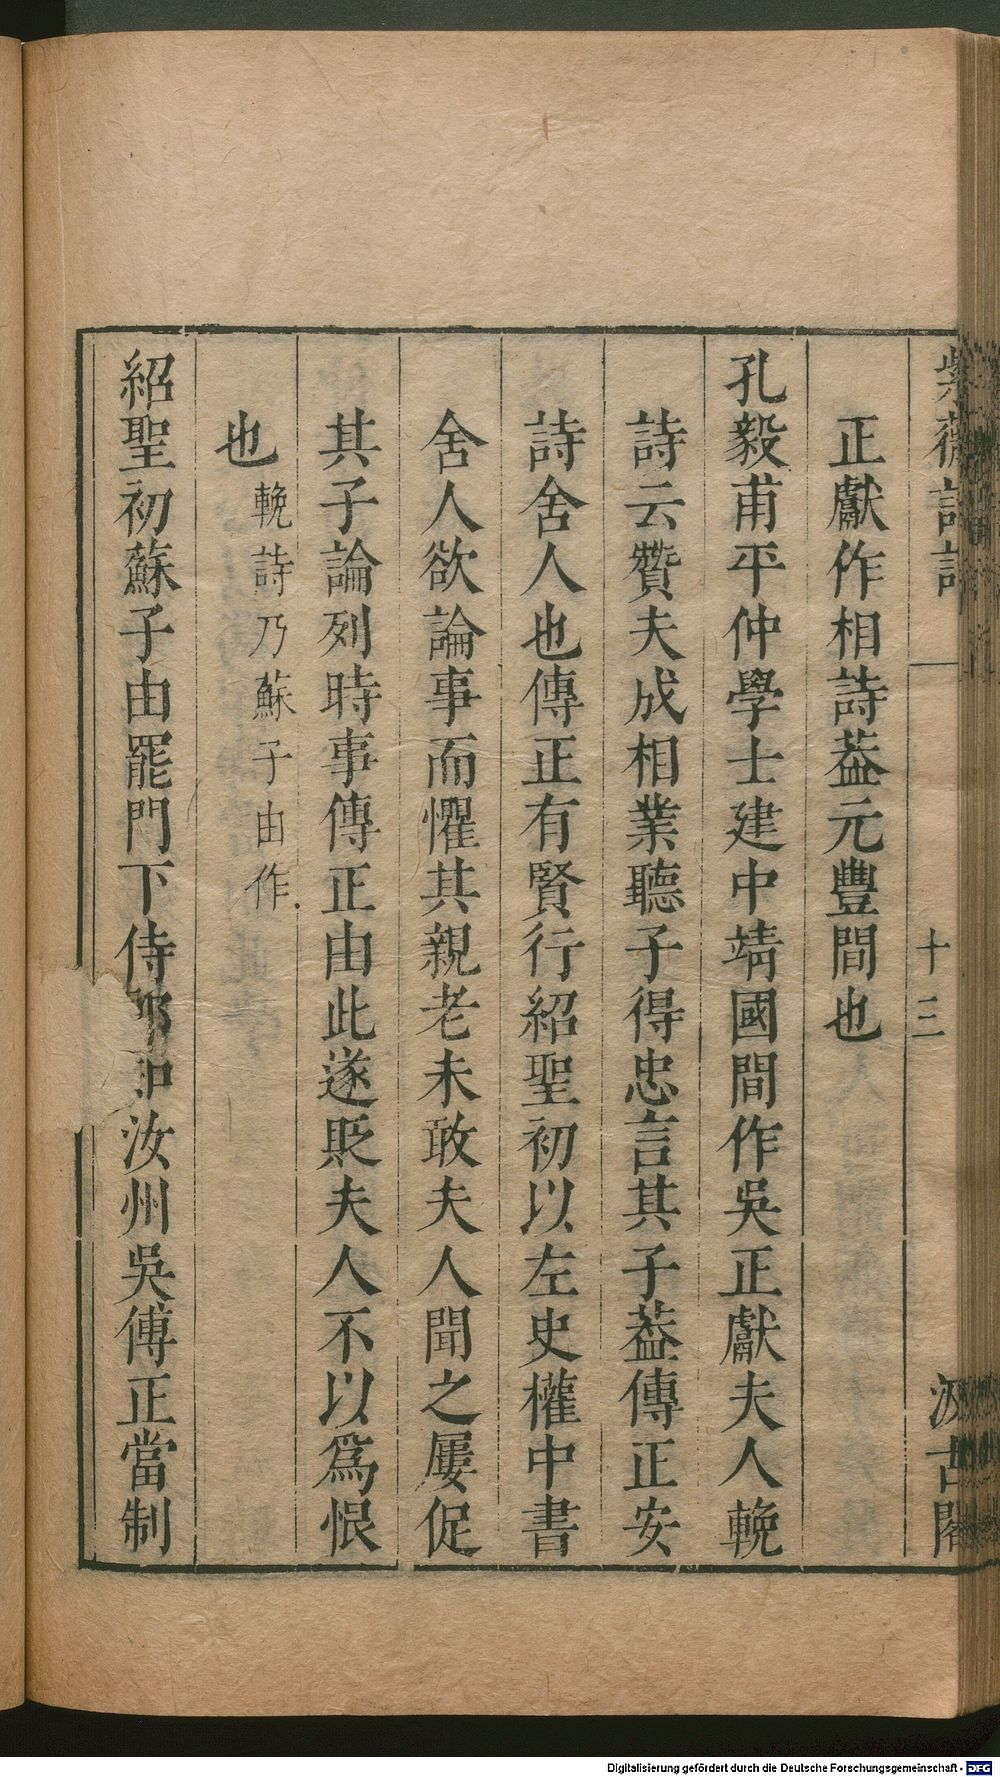 紫薇詩話
十三
汲古閣
正獻作相詩葢元豐間也
孔毅甫平仲學士建中靖國間作吳正獻夫人輓
詩云贊夫成相業聽子得忠言其子葢傳正安
詩舍人也傳正有賢行紹聖初以左史權中書
舍人欲論事而懼其親老未敢夫人聞之屢促
其子論列時事傳正由此遂貶夫人不以爲恨
也 輓詩乃蘇子由作
紹聖初蘇子由罷門下侍郎知汝州吳傅正當制
Digitalisierung gefördert durch die Deutsche Forschungsgemeinschaft - DFG